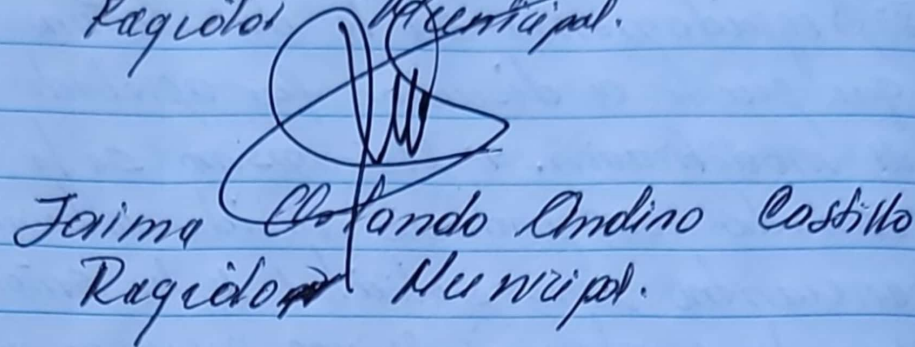 Regidor Municipal.
Jaime Orlando Andino Castillo
Regidor Municipal.